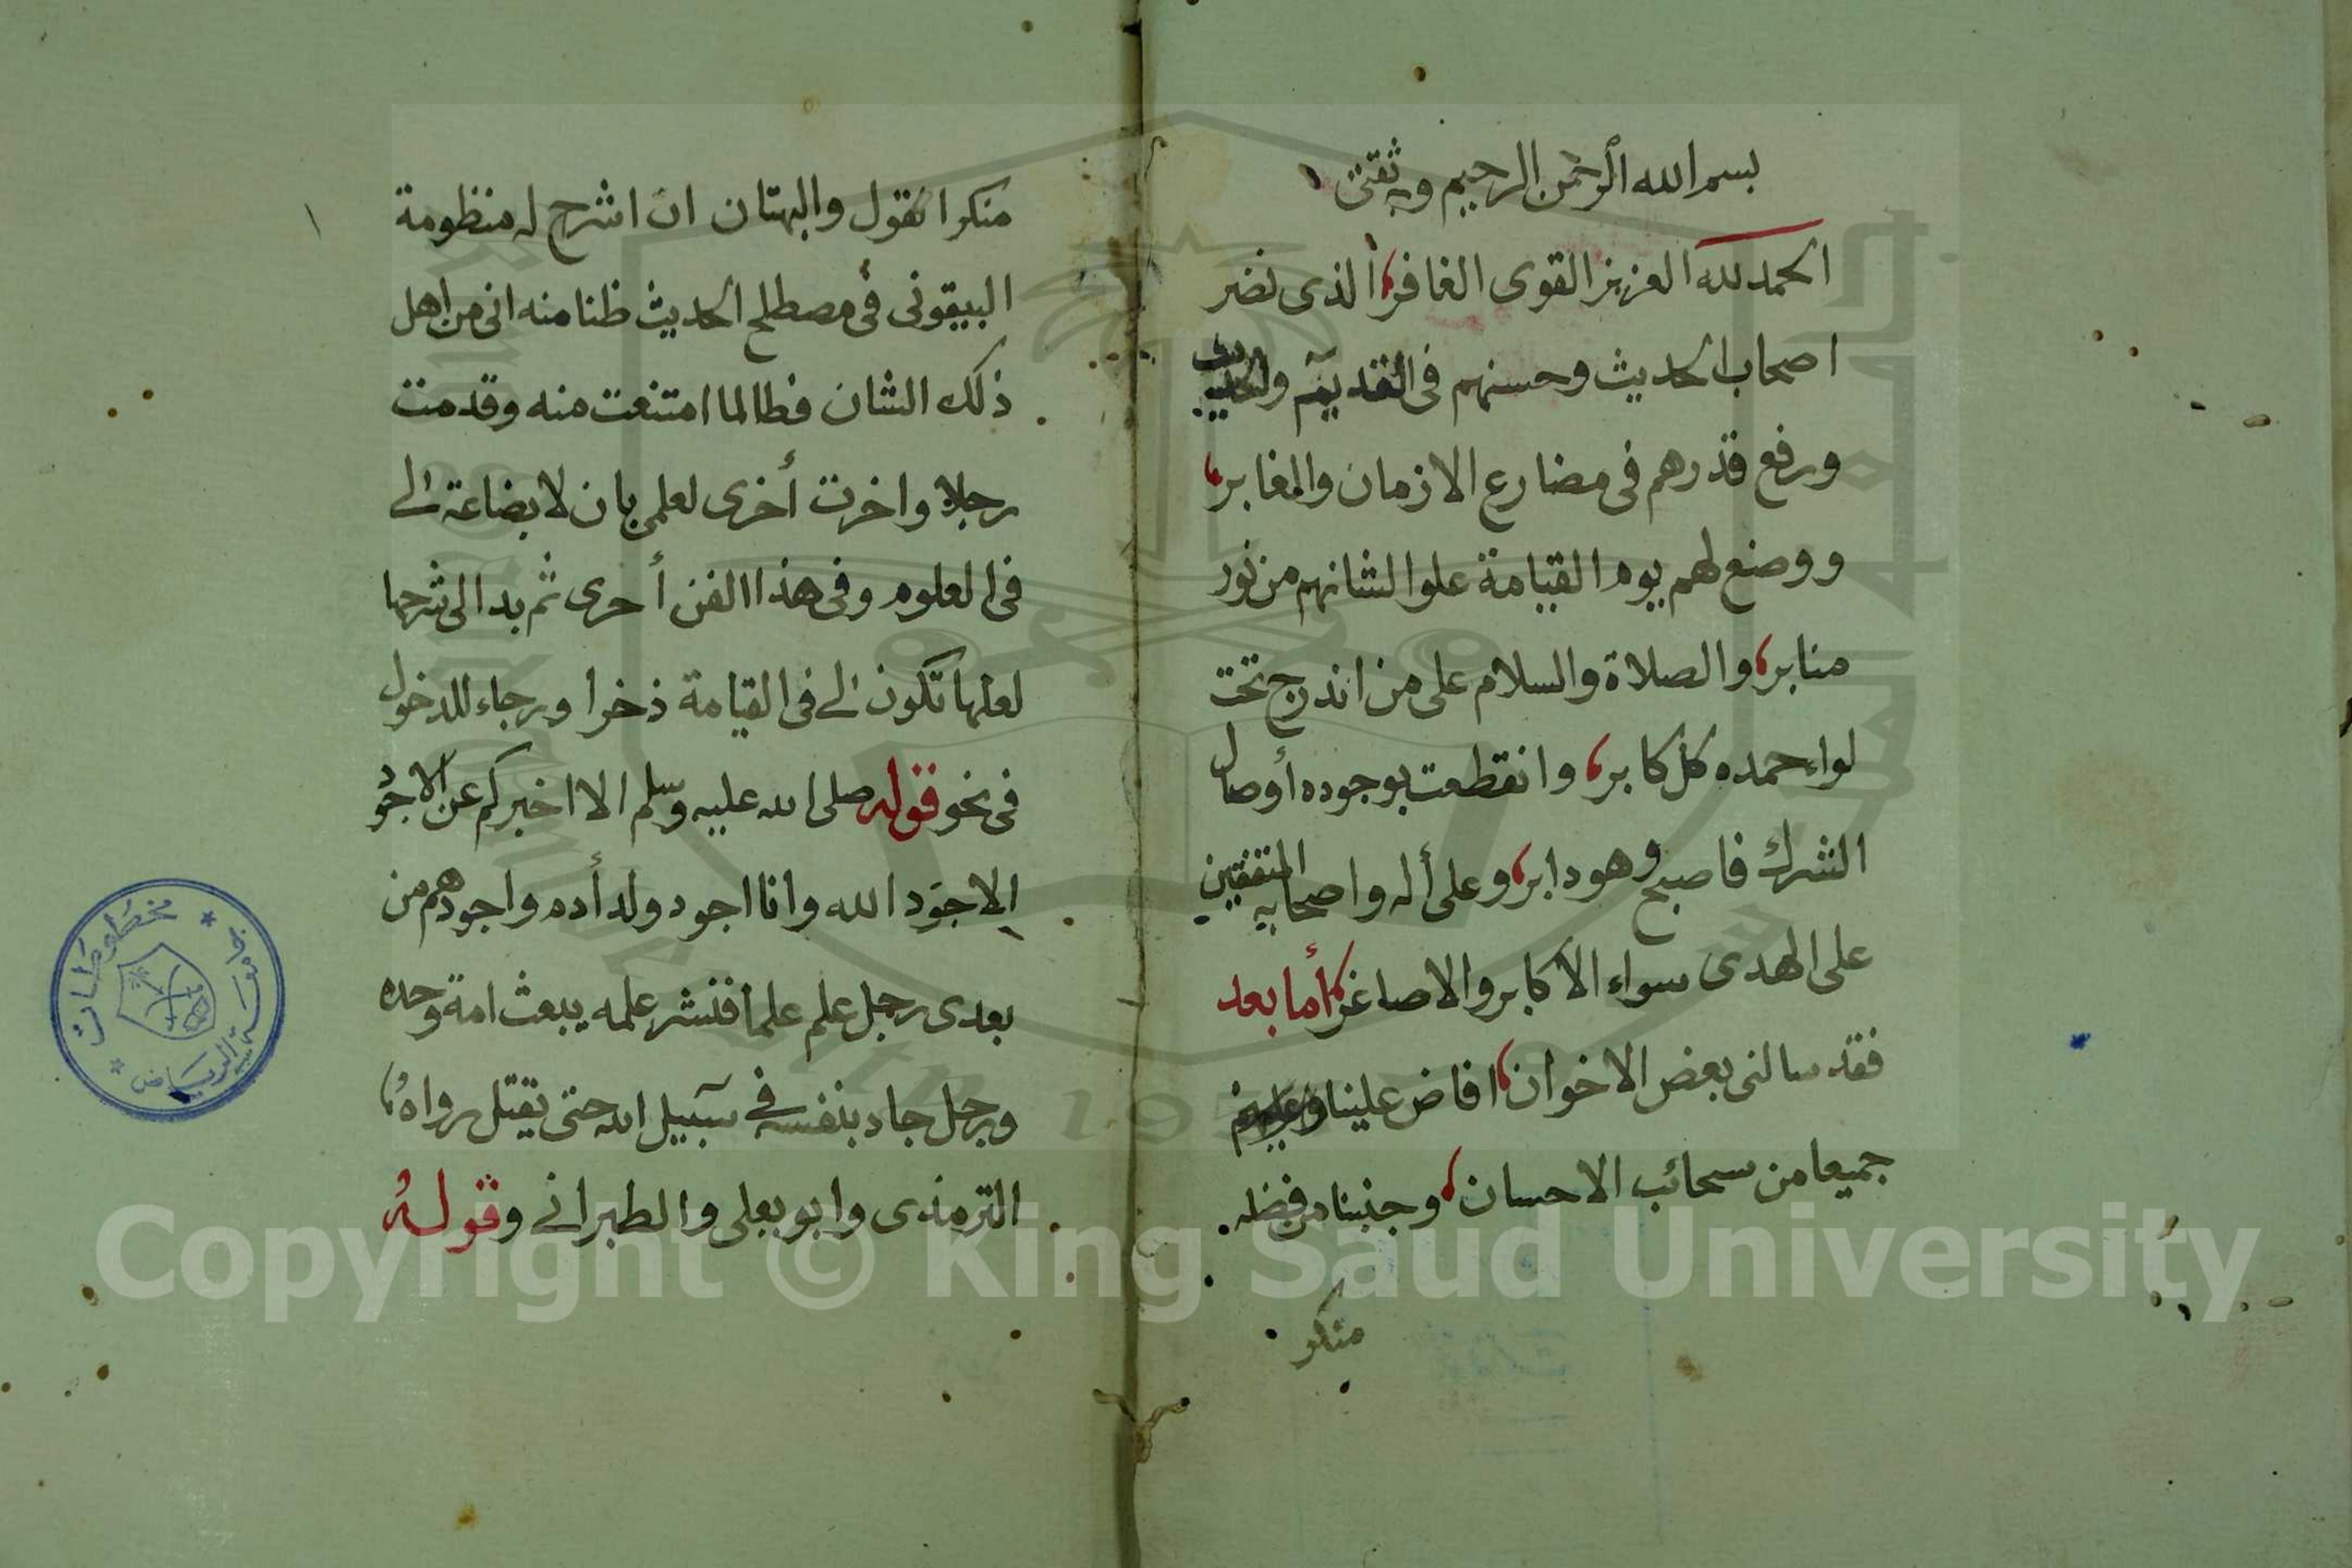 بسم الله الرحمن الرحيم وبه ثقتى
الحمد لله العزيز القوى الغافر، الذى نضر
اصحاب الحديث وحسنهم فى القديم والحديث
ورفع قدرهم فى مضارع الازمان والغابر،
ووضع لهم يوم القيامة علوا لشانهم من نور
منابر، والصلاة والسلام على من اندرج تحت
لواء حمده كل كابر، وانقطعت بوجوده أوصال
الشرك فاصبح وهو دابر، وعلى أله واصحابه المتفقين
على الهدى سواء الاكابر والاصاغر، أما بعد
فقد سالنى بعض الاخوان، افاض علينا وعليهم
جميعا من سحائب الاحسان، وجنبنا من فضله
منكر
منكر القول والبهتان ان اشرح له منظومة
البيقونى فى مصطلح الحديث ظنا منه انى من اهل
ذلك الشان فطالما امتنعت منه وقدمت
رجلا واخرت أخرى لعلمى بان لا بضاعة لى
فى العلوم وفى هذا الفن أحرى ثم بدا لى شرحها
لعلها تكون لى فى القيامة ذخرا ورجاء للدخول
فى نحو قوله صلى الله عليه وسلم الا اخبركم عن الاجود
الاجود الله وانا اجود ولد أدم واجودهم من
بعدى رجل علم علما فنشر علمه يبعث امة وحده
ورجل جاد بنفسه فى سبيل الله حتى يقتل رواه
الترمذى وابو يعلى والطبرانى وقوله
جامعة الرياض
مخطوطات
Copyright © King Saud University